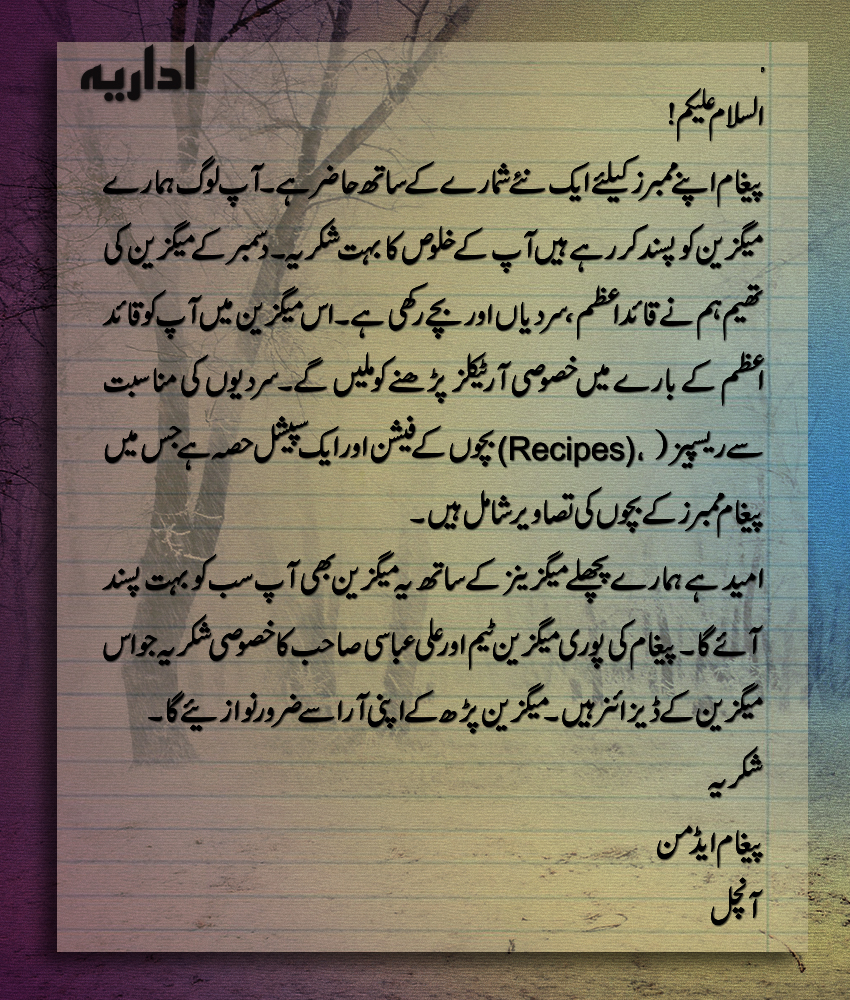 اداریہ
السلام علیکم!
پیغام اپنے ممبرز کیلئے ایک نئے شمارے کے ساتھ حاضر ہے۔ آپ لوگ ہمارے
میگزین کو پسند کر رہے ہیں آپ کے خلوص کا بہت شکریہ۔ دسمبر کے میگزین کی
تھیم ہم نے قائداعظم، سردیاں اور بچے رکھی ہے۔ اس میگزین میں آپ کو قائد
اعظم کے بارے میں خصوصی آرٹیکلز پڑھنے کو ملیں گے۔ سردیوں کی مناسبت
سے ریسپیز ( ،(Recipes) بچوں کے فیشن اور ایک سپیشل حصہ ہے جس میں
پیغام ممبرز کے بچوں کی تصاویر شامل ہیں۔
امید ہے ہمارے پچھلے میگزینز کے ساتھ یہ میگزین بھی آپ سب کو بہت پسند
آئے گا۔ پیغام کی پوری میگزین ٹیم اور علی عباسی صاحب کا خصوصی شکریہ جو اس
میگزین کے ڈیزائنر ہیں۔ میگزین پڑھ کے اپنی آرا سے ضرور نوازیئے گا۔
شکریہ
پیغام ایڈمن
آنچل